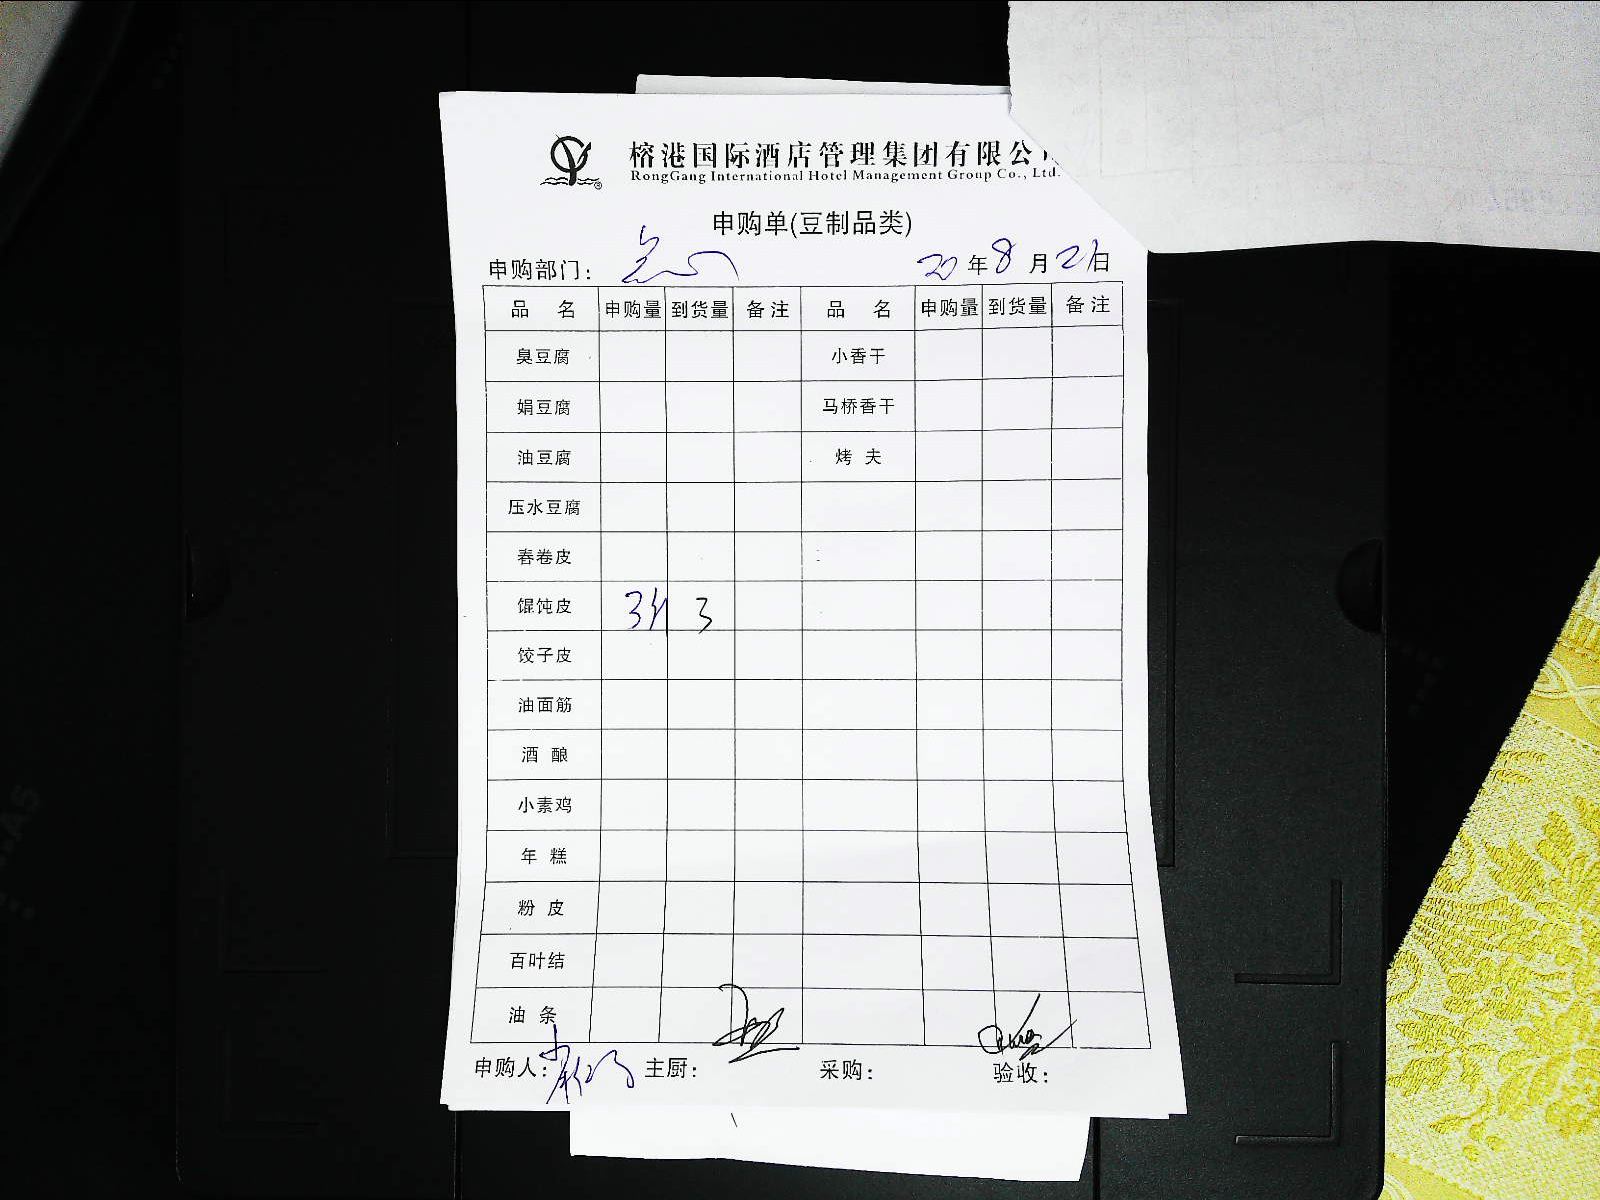 榕港国际酒店管理集团有限公
RongGang International Hotel Management Group Co., Ltd.
申购单(豆制品类)
申购部门: 20年8月21日
品 名 申购量 到货量 备注 品 名 申购量 到货量 备注
臭豆腐 小香干
娟豆腐 马桥香干
油豆腐 烤 夫
压水豆腐
春卷皮
馄饨皮 3斤 3
饺子皮
油面筋
酒 酿
小素鸡
年 糕
粉 皮
百叶结
油 条
申购人: 主厨: 采购: 验收: